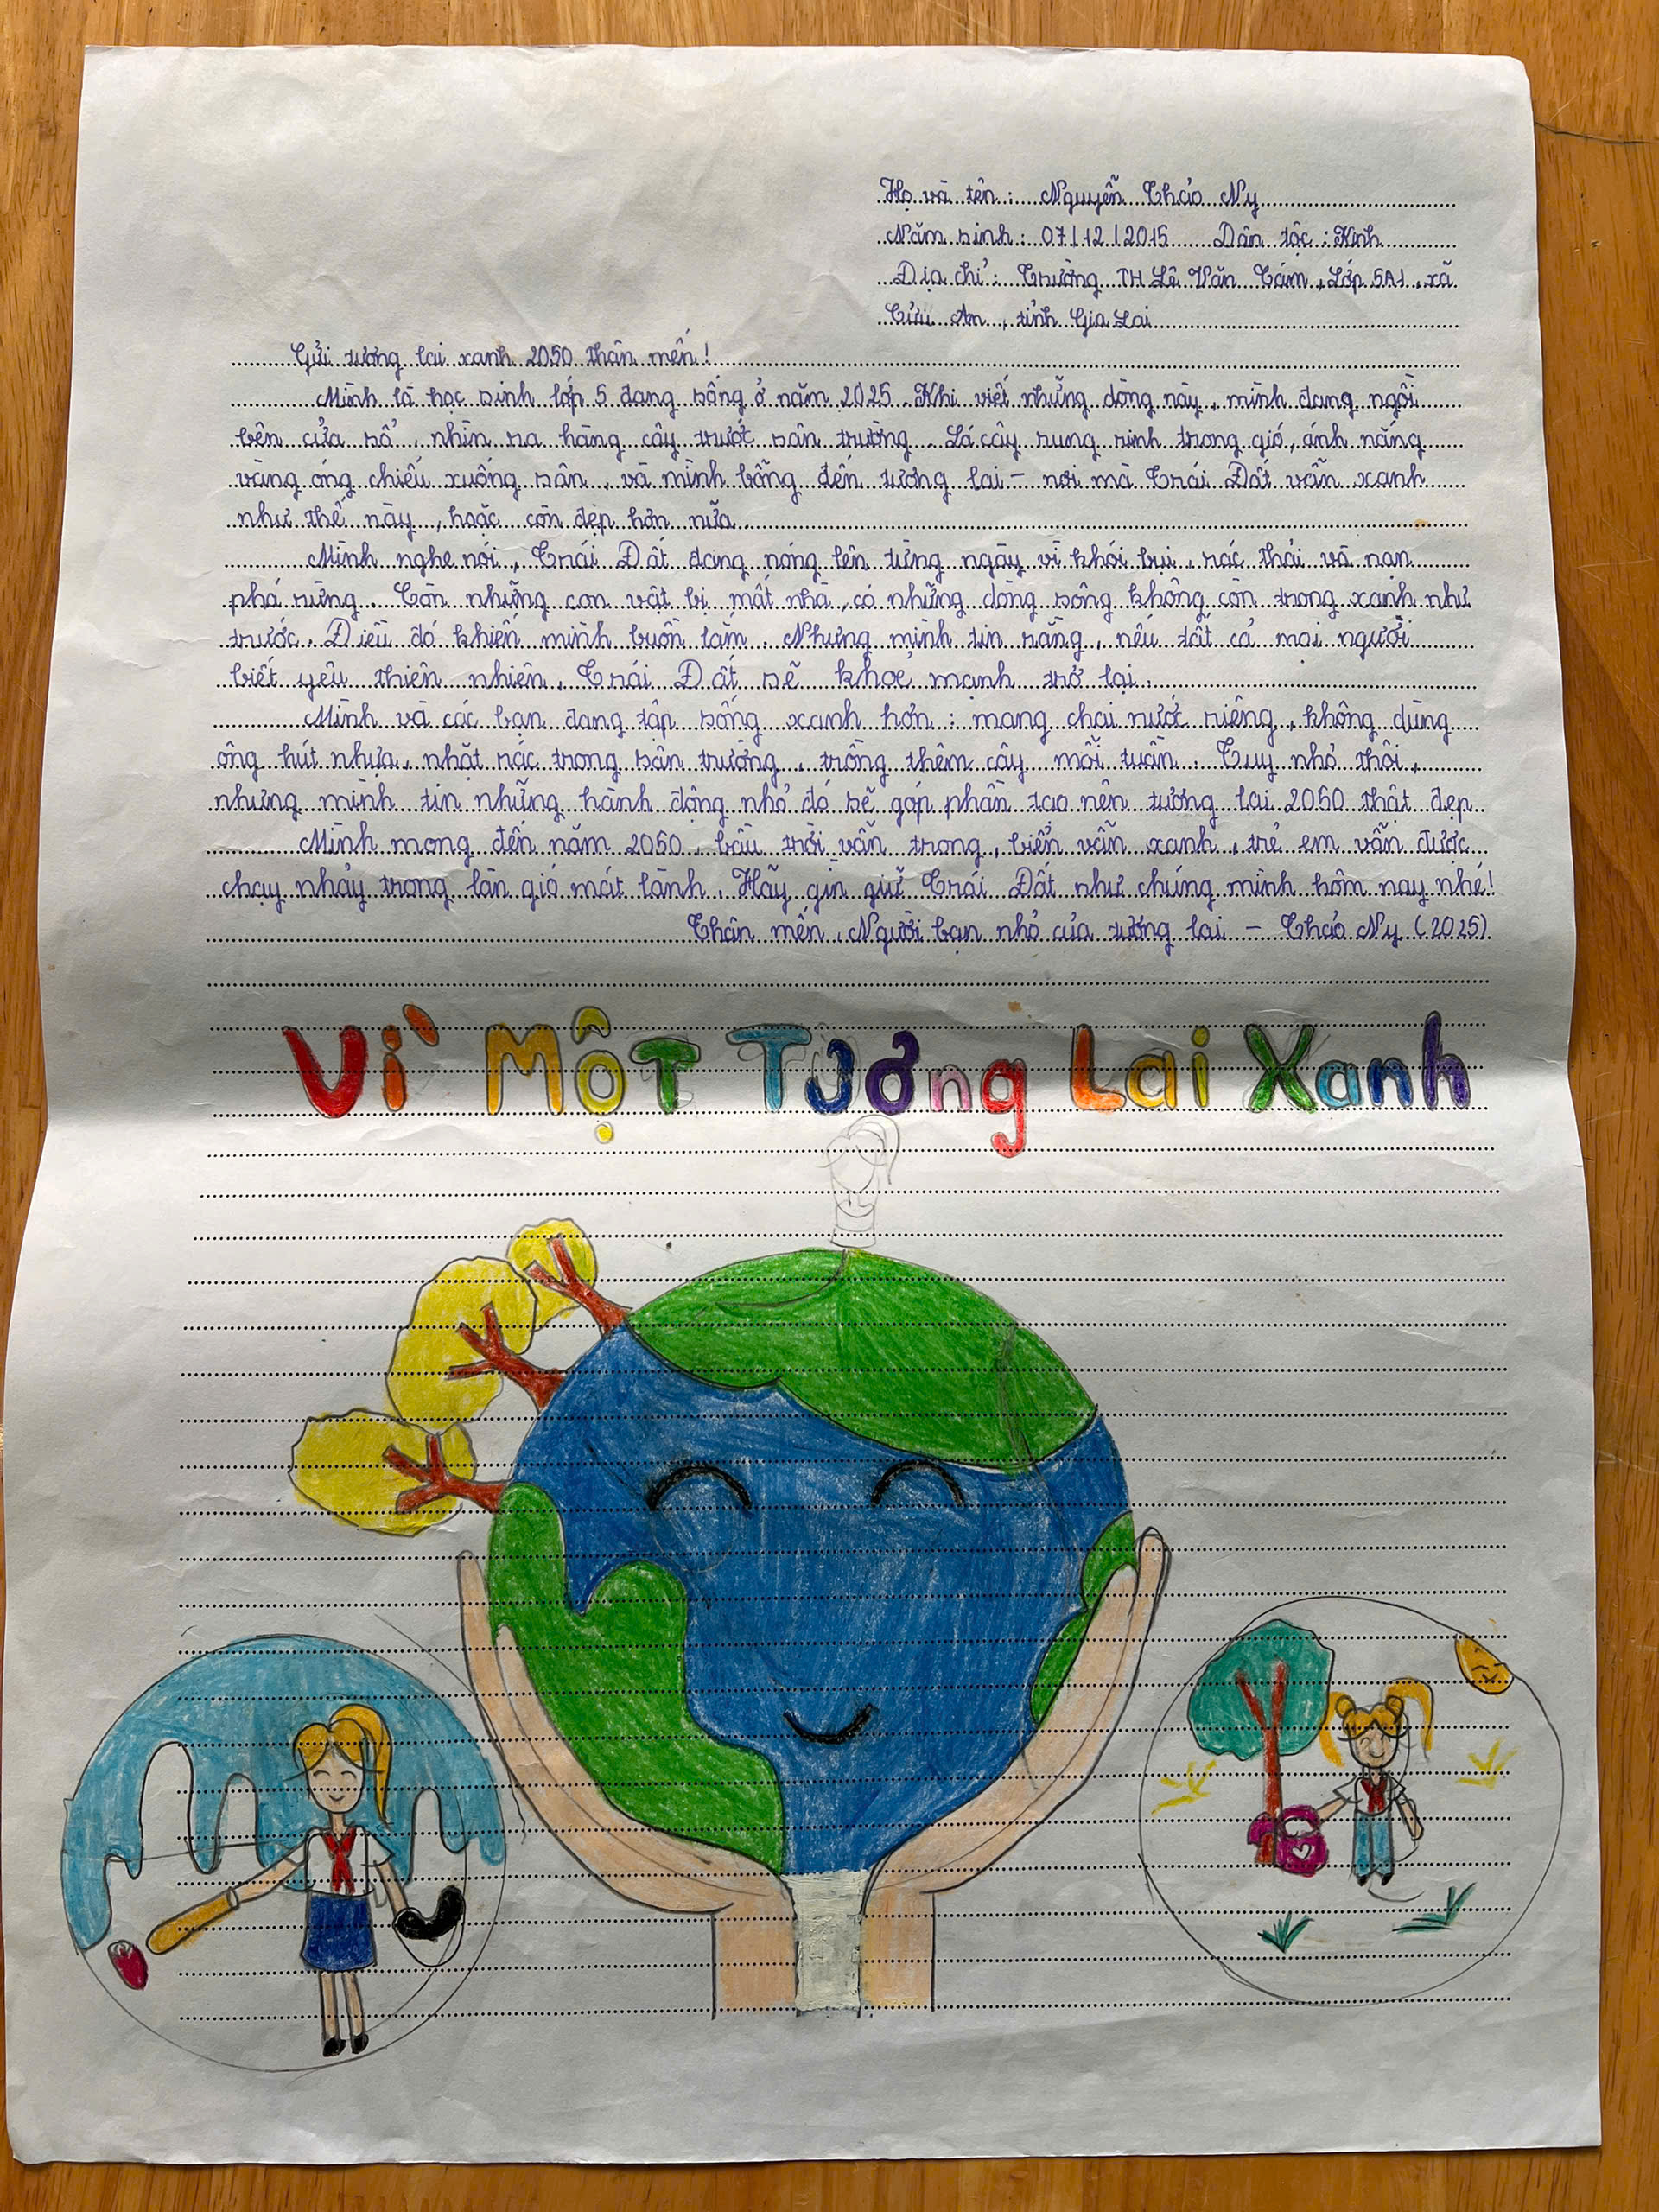 Họ và tên : Nguyễn Thảo Ny
Năm sinh : 07/12/2015 Dân tộc : Kinh
Địa chỉ : Trường TH Lê Văn Tám , Lớp 5A1 , xã
Cửu An , tỉnh Gia Lai
Gửi tương lai xanh 2050 thân mến !
Mình là học sinh lớp 5 đang sống ở năm 2025 . Khi viết những dòng này , mình đang ngồi
bên cửa sổ , nhìn ra hàng cây trước sân trường . Lá cây rung rinh trong gió , ánh nắng
vàng óng chiếu xuống sân , và mình bỗng đến tương lai – nơi mà Trái Đất vẫn xanh
như thế này , hoặc còn đẹp hơn nữa
Mình nghe nói , Trái Đất đang nóng lên từng ngày vì khói bụi , rác thải và nạn
phá rừng . Còn những con vật bị mất nhà , có những dòng sông không còn trong xanh như
trước . Điều đó khiến mình buồn lắm . Nhưng mình tin rằng , nếu tất cả mọi người
biết yêu thiên nhiên , Trái Đất sẽ khoẻ mạnh trở lại .
Mình và các bạn đang tập sống xanh hơn : mang chai nước riêng , không dùng
ống hút nhựa , nhặt rác trong sân trường , trồng thêm cây mỗi tuần . Tuy nhỏ thôi ,
nhưng mình tin những hành động nhỏ đó sẽ góp phần tạo nên tương lai 2050 thật đẹp
Mình mong đến năm 2050 , bầu trời vẫn trong , biển vẫn xanh , trẻ em vẫn được
chạy nhảy trong làn gió mát lành . Hãy gìn giữ Trái Đất như chúng mình hôm nay nhé !
Thân mến , Người bạn nhỏ của tương lai – Thảo Ny (2025)
Vì Một Tương Lai Xanh